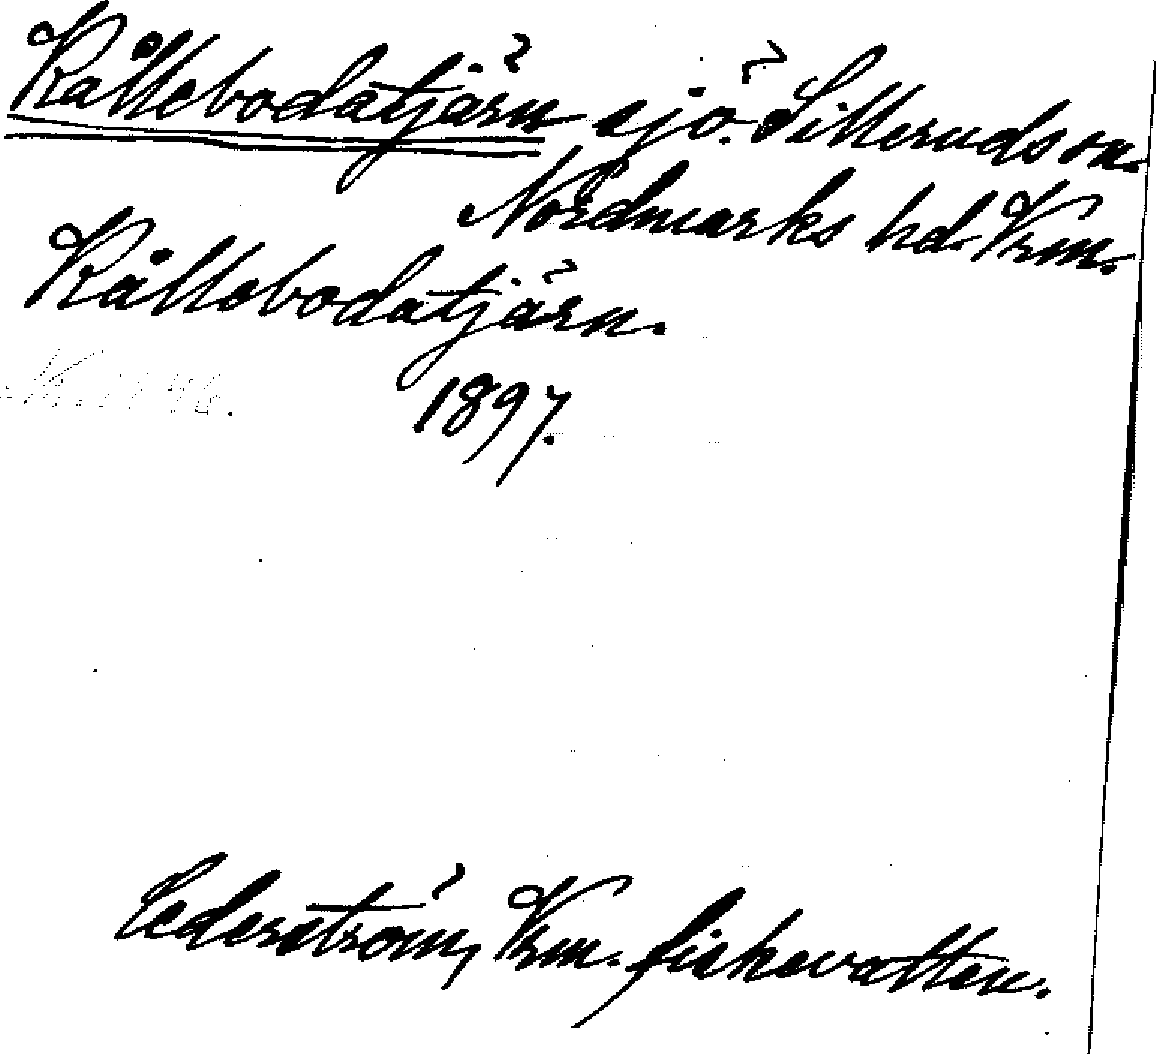 Kållebodatjärn sjö. Sillerud sn.
Nordmarks hd. Vrm.
Kållebodatjärn.
1897.
Cederström, Vrm. fiskevatten.